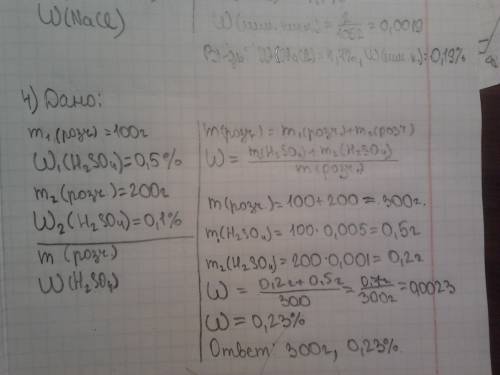 W(NaCl)
W(лим. кисл.) = 2/1052 = 0,0019
W(лим. к.) = 0,19%
4) Дано:
m₁(розч) = 100г
W₁(H₂SO₄) = 0,5%
m₂(розч) = 200г
W₂(H₂SO₄) = 0,1%
m(розч)
W(H₂SO₄)
m(розч) = m₁(розч) + m₂(розч)
W = m(H₂SO₄) + m₂(H₂SO₄) / m(розч)
m(розч) = 100 + 200 = 300г.
m₁(H₂SO₄) = 100 · 0,005 = 0,5г
m₂(H₂SO₄) = 200 · 0,001 = 0,2г
W = 0,2г + 0,5г / 300 = 0,7г / 300г = 0,0023
W = 0,23%
Ответ: 300г, 0,23%